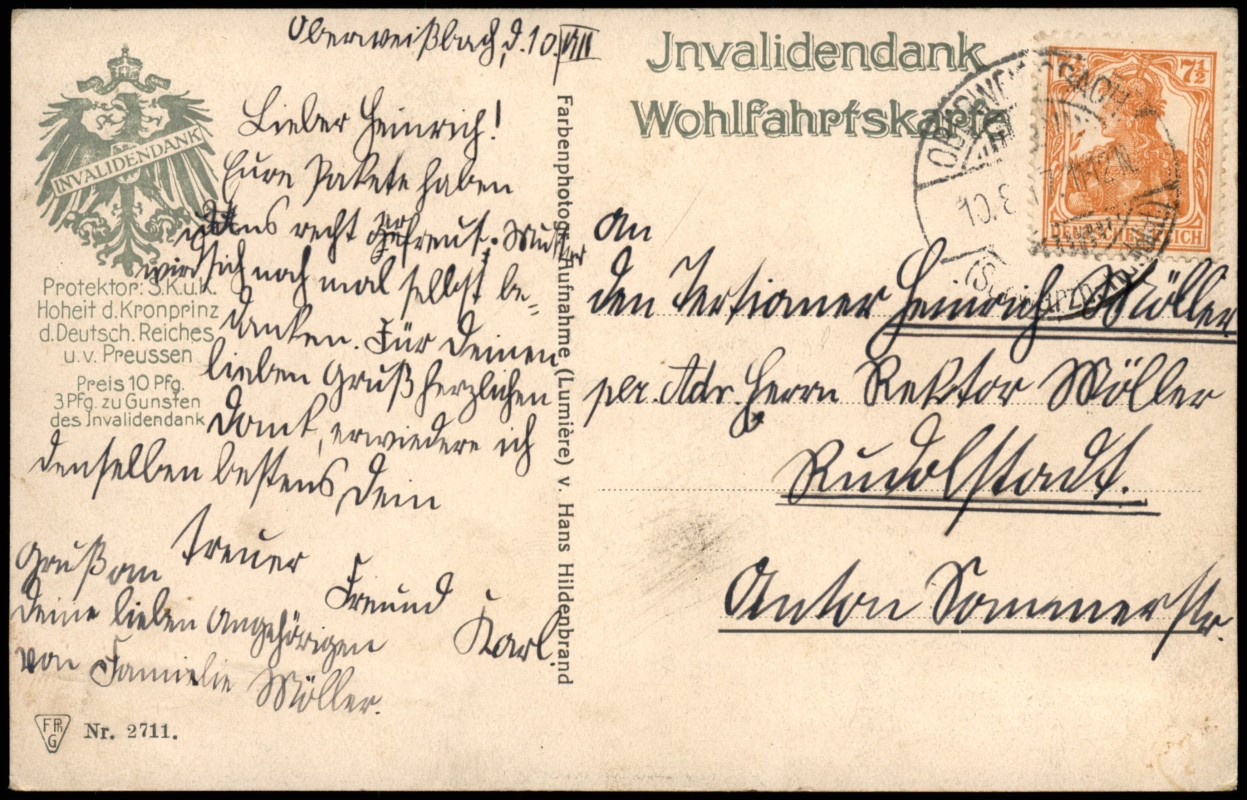 Oberweißbach, d. 10. VIII
Lieber Heinrich!
Eure Pakete haben
uns recht erfreut. Mutter
wird sich noch mal selbst be=
danken. Für deinen
lieben Gruß herzlichen
Dank, erwiedere ich
denselben bestens Dein
treuer
Freund
Karl.
Gruß an
deine lieben Angehörigen
von Familie Möller.
INVALIDENDANK
Protektor: S.K.u.K.
Hoheit d. Kronprinz
d. Deutsch. Reiches
u. v. Preussen
Preis 10 Pfg.
3 Pfg. zu Gunsten
des Invalidendank
FPh
G
Nr. 2711.
Farbenphotogr. Aufnahme (Lumière) v. Hans Hildenbrand
Jnvalidendank
Wohlfahrtskarte
7½
OBERWEISSBACH
10.8. 11-12N.
(Schwarzb
An
den Tertianer Heinrich Möller
per. Adr. Herrn Rektor Möller
Rudolstadt.
Anton Sommerstr.